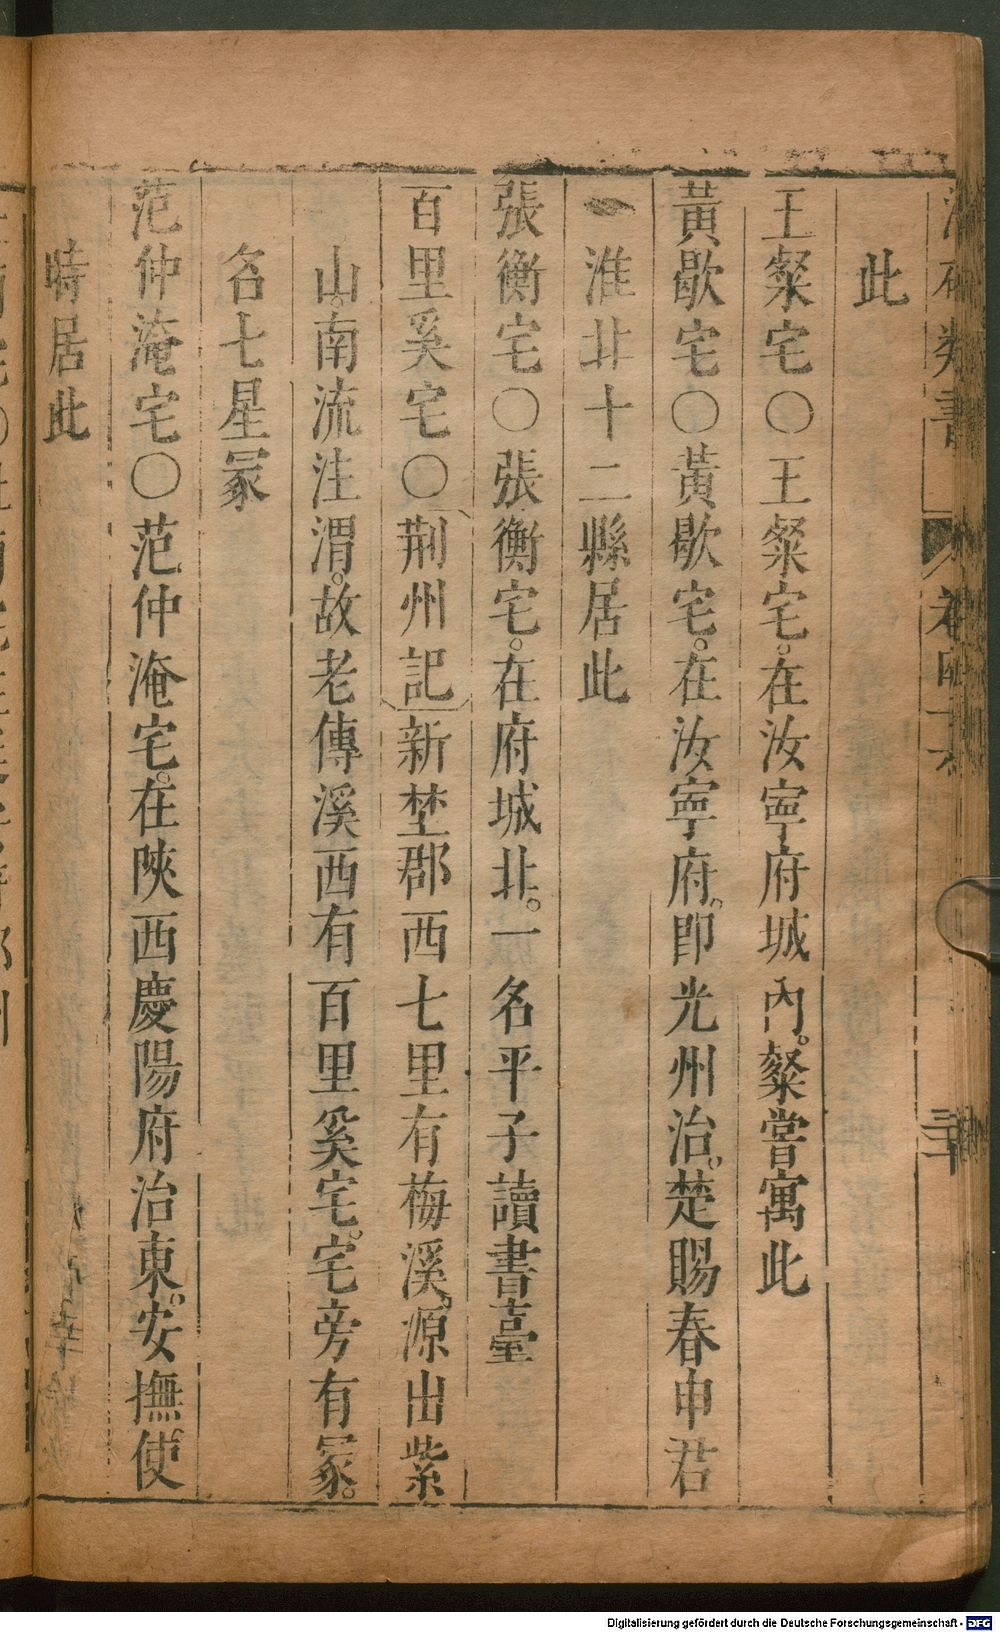 類書
此
王粲宅〇王粲宅。在汝寧府城內。粲嘗寓此
黃歇宅〇黃歇宅。在汝寧府。卽光州治。楚賜春申君
淮北十二縣居此
張衡宅〇張衡宅。在府城北。一名平子讀書臺
百里奚宅〇荆州記新埜郡西七里有梅溪。源出紫
山。南流注渭。故老傳溪西有百里奚宅。宅旁有冡。
名七星冡
范仲淹宅〇范仲淹宅。在陜西慶陽府治東。安撫使
時居此
Digitalisierung gefördert durch die Deutsche Forschungsgemeinschaft - DFG